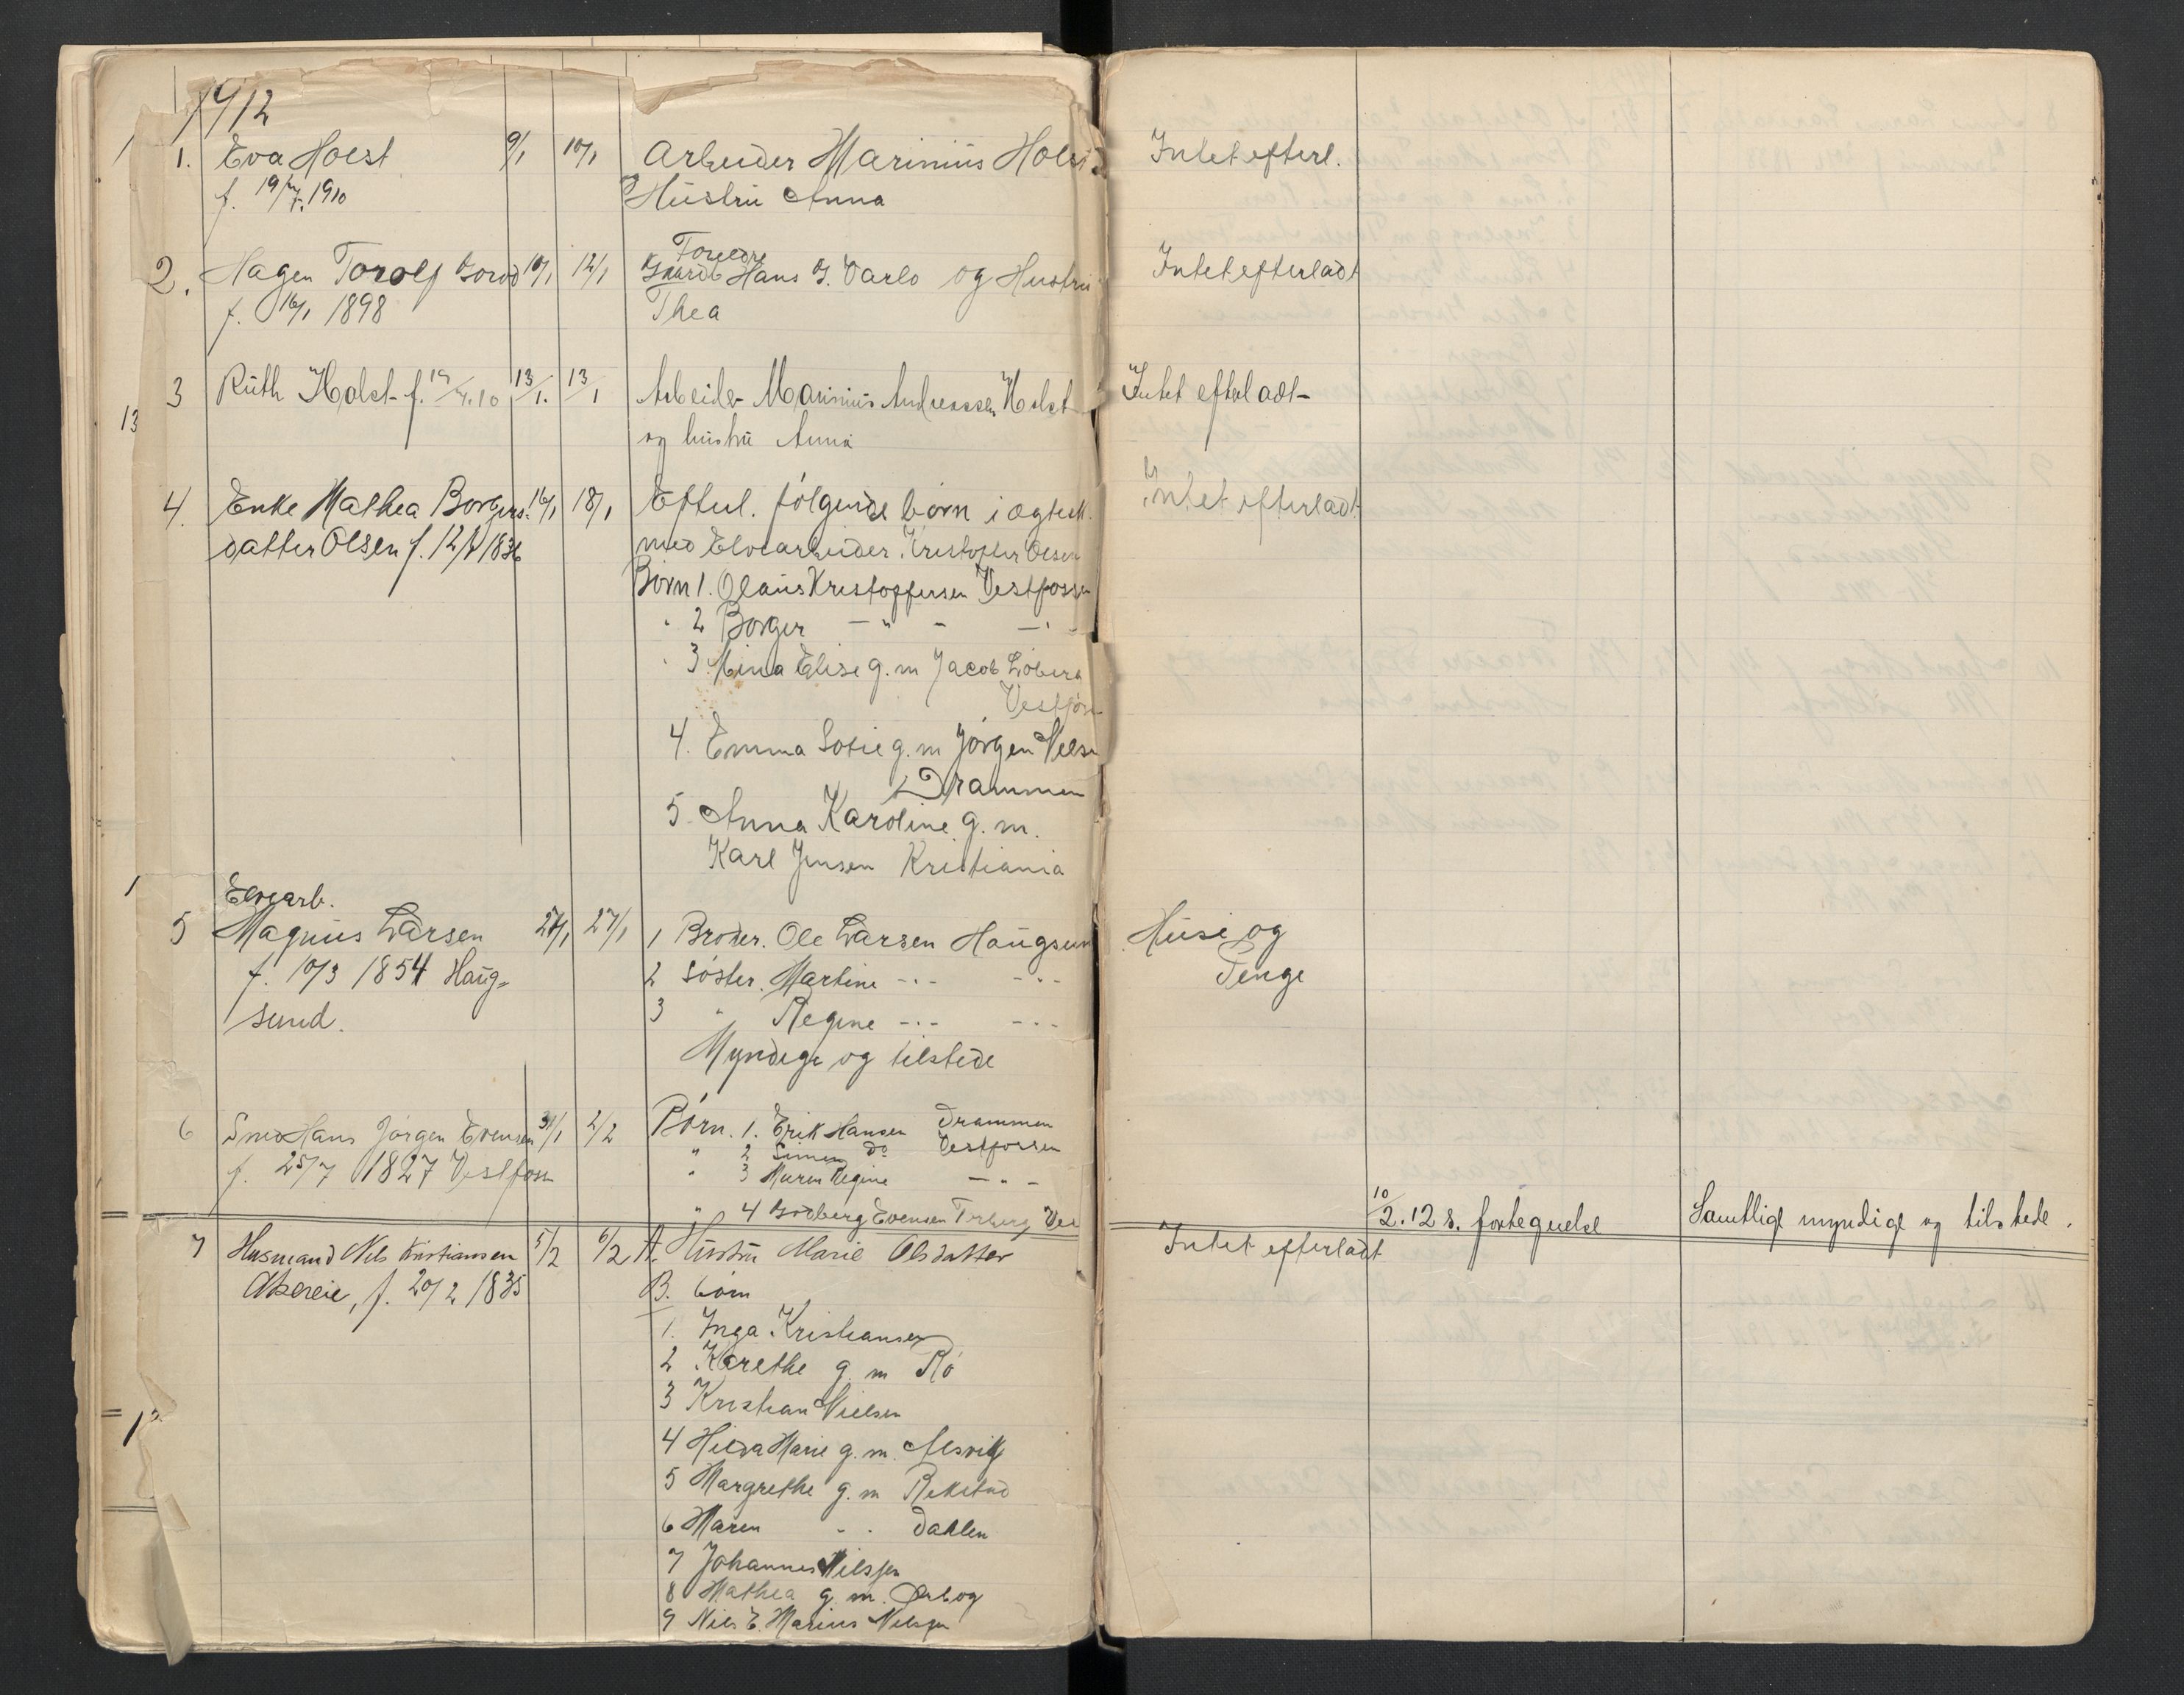 1912
1. Eva Holst 9/1 10/1 Arbeider Marinius Holst Intet efterl.
f. 19/4 1910 Hustru Anna
Foreldre
2. Hagen Torolf 10/1 12/1 Gaardb Hans G. Varlo og Hustru Intet efterladt
f. 16/1 1898 Thea
3 Ruth Holst f. 19/4.10 13/1. 13/1 Arbeider Marinius Andreassen Holst Intet efterladt
13
og hustru Anna
4. Enke Mathea Borgers 16/1 18/1 Efterl. følgende børn i ægtesk. Intet efterladt
datter Olsen f. 12/ 1836 med Elvearbeider Kristoffer Olsen
Børn 1. Olaus Kristoffersen Vestfossen
" 2 Borger - " - - " -
" 3 Mina Elise g. m Jacob Loberg
Vestfos
4. Emma Sofie g. m Jørgen Nelse
Drammen
5. Anna Karoline g. m.
Karl Jensen Kristiania
1
Elvearb.
5 Magnus Larsen 24/1 27/1 1 Broder. Ole Larsen Haugsun Huse og
f. 10/3 1854 Haug- 2 Søster. Martine - " - - " - Penge
sund. 3 " Regine - " - - " -
Myndige og tilstede
6 Smed Hans Jørgen Evensen 31/1 2/2 Børn. 1. Erik Hansen Drammen
f. 25/7 1827 Vestfossen " 2 Simen do Vestfossen
" 3 Maren Regine - " -
" 4 Evensen Ves 10/2.12 s. fortegnelse Samtlige myndige og tilstede.
7 Husmand Nils Kristiansen 5/2 6/2 A. Hustru Marie Olsdatter Intet efterladt
f. 20/2 1835 B. børn
1. Inga Kristiansen
2 Karethe g. m Rø
3 Kristian Nielsen
4 Hilda Marie g. m. Alsvik
5 Margrethe g. m Rekstad
6 Maren - " - Dahlen
7 Johannes Nilssen
8 Mathea g. m.
9 Nils E. Marius Nelsen